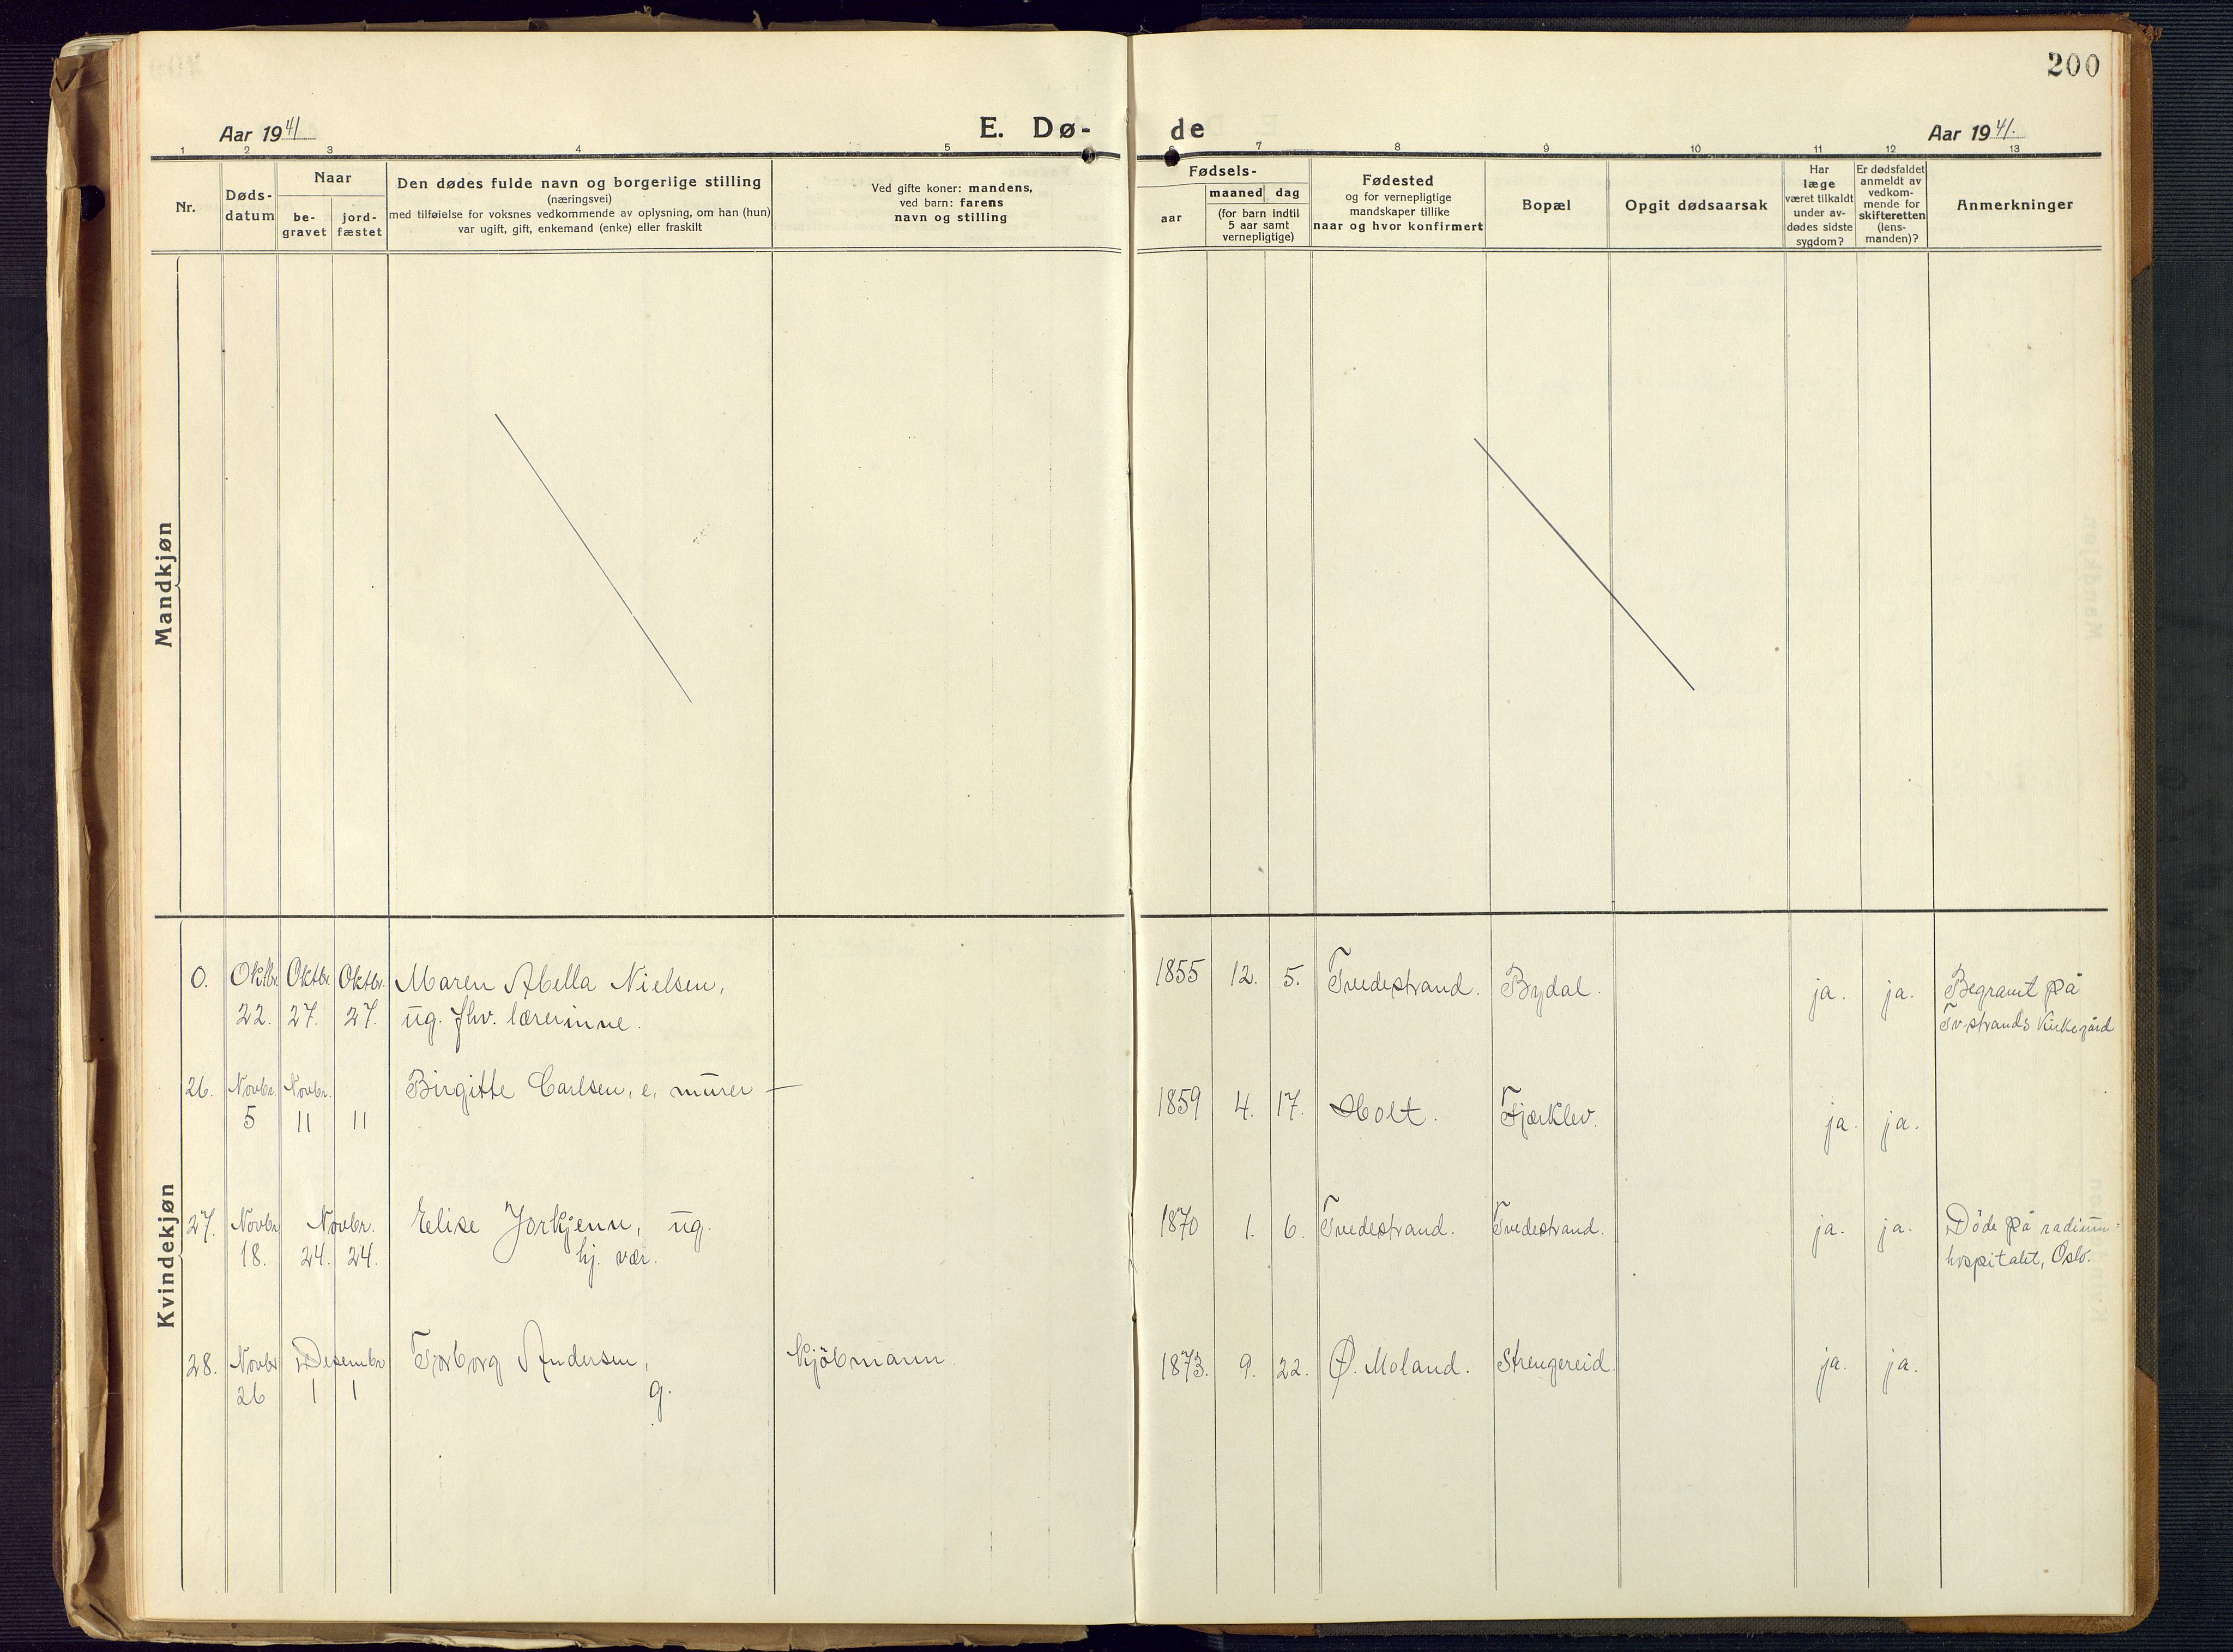 200
Aar 1941
E. Dø-
de
Aar 1941.
1 2 3 4 5 6 7 8 9 10 11 12 13
Nr.
Døds-
datum
Naar
be-
gravet
jord-
fæstet
Den dødes fulde navn og borgerlige stilling
(næringsvei)
med tilføielse for voksnes vedkommende av oplysning, om han (hun)
var ugift, gift, enkemand (enke) eller fraskilt
Ved gifte koner: mandens,
ved barn: farens
navn og stilling
Fødsels-
aar
maaned dag
(for barn indtil
5 aar samt
vernepligtige)
Fødested
og for vernepligtige
mandskaper tillike
naar og hvor konfirmert
Bopæl
Opgit dødsaarsak
Har
læge
været tilkaldt
under av-
dødes sidste
sygdom?
Er dødsfaldet
anmeldt av
vedkom-
mende for
skifteretten
(lens-
manden)?
Anmerkninger
Mandkjøn
Kvindekjøn
0. Oktbr. Oktbr. Oktbr. Maren Abella Nielsen, 1855 12. 5. Tvedestrand. Bydal. ja. ja. Begravet på
22. 27. 27. ug. fhv. lærerinne. Tv-strands Kirkegård
26. Novbr. Novbr. Birgitte Carlsen, e. murer — 1859 4. 17. Holt. Fjærklev. ja. ja.
5 11 11
27. Novbr Novbr. Elise Jorkjenn, ug. 1870 1. 6. Tvedestrand. Tvedestrand. ja. ja. Döde på radium-
18. 24. 24. hj. vær. hospitalet, Oslo.
28. Novbr Desembr Torborg Andersen, Kjöbmann. 1873. 9. 22. Ø. Moland. Strengereid. ja. ja.
26 1 1 g.